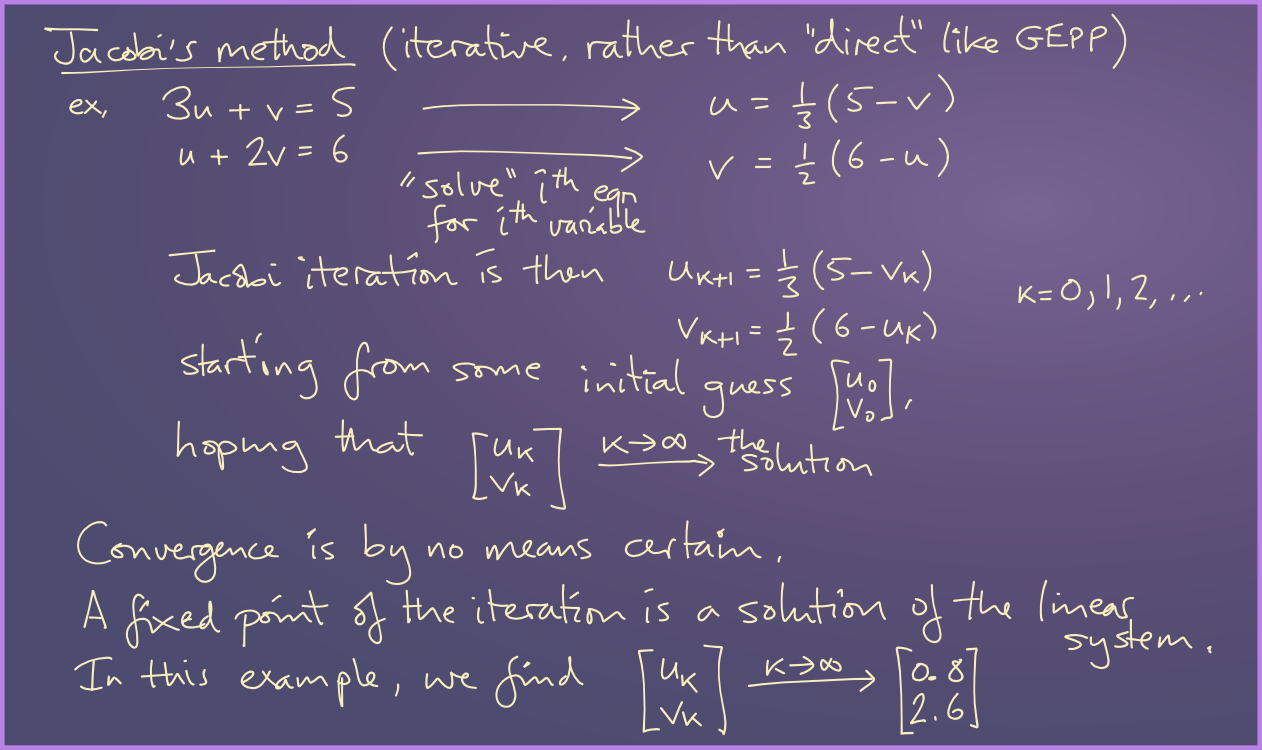 Jacobi's method (iterative, rather than "direct" like GEPP)
ex, 3u + v = 5 ⟶ u = 1/3 (5 - v)
u + 2v = 6 ⟶ v = 1/2 (6 - u)
"solve" ith eqn
for ith variable
Jacobi iteration is then u_{k+1} = 1/3 (5 - v_k)
k = 0, 1, 2, ...
v_{k+1} = 1/2 (6 - u_k)
starting from some initial guess [u_0 v_0],
hoping that [u_k v_k] k→∞ ⟶ the solution
Convergence is by no means certain.
A fixed point of the iteration is a solution of the linear
system.
In this example, we find [u_k v_k] k→∞ ⟶ [0.8 2.6]